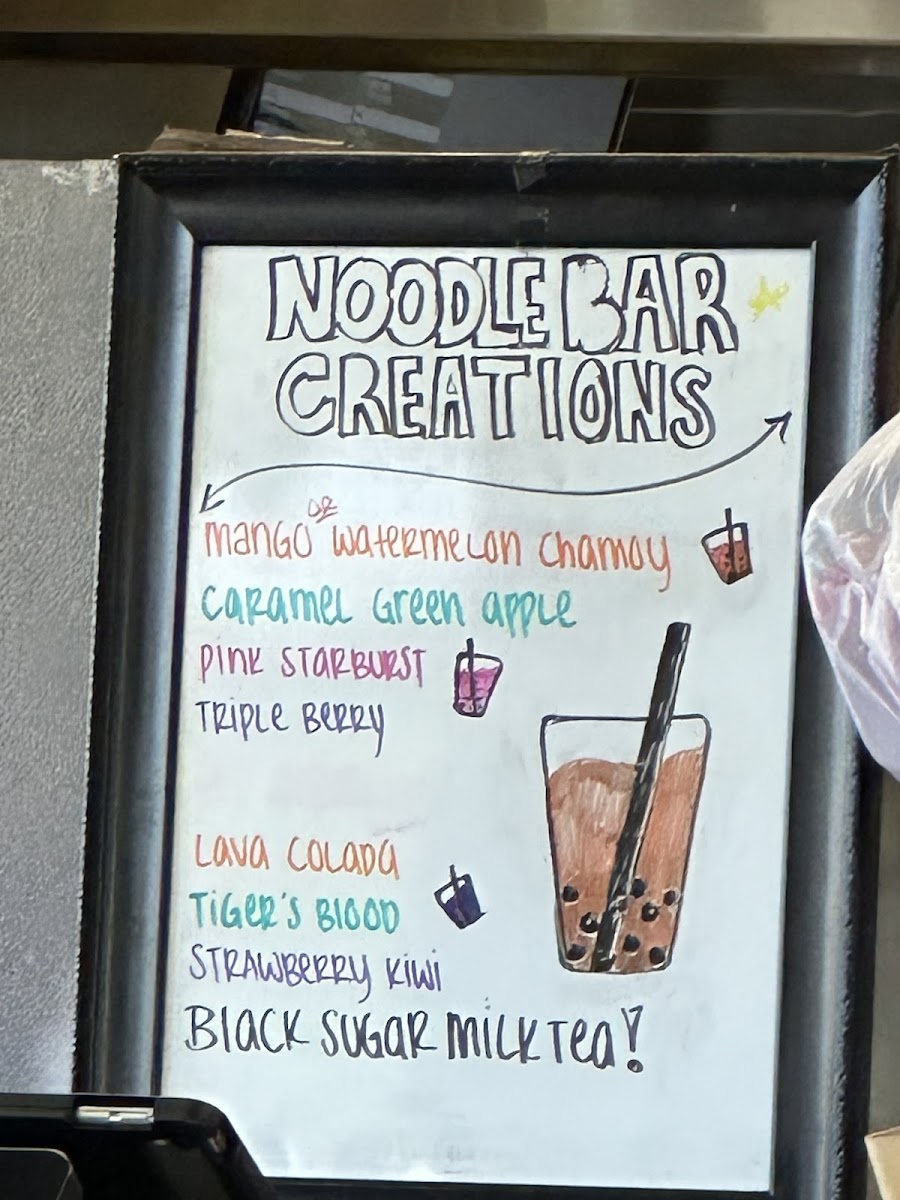 NOODLE BAR
CREATIONS
MANGO OR WATERMELON CHAMOY
CARAMEL GREEN APPLE
PINK STARBURST
TRIPLE BERRY
LAVA COLADA
TIGER'S BLOOD
STRAWBERRY KIWI
BLACK SUGAR MILK TEA!